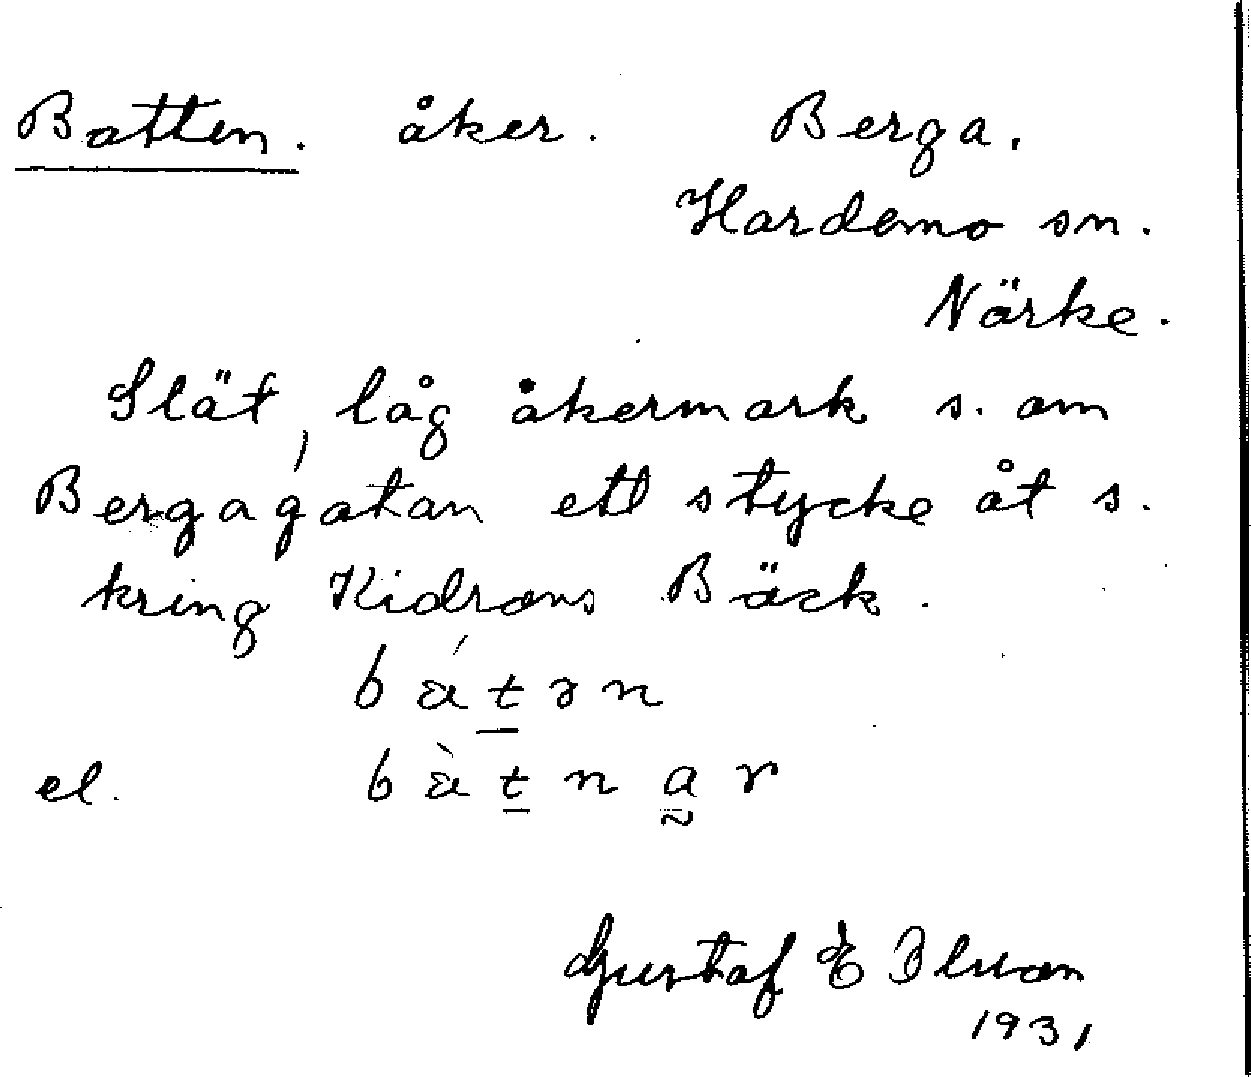 Batten. åker. Berga.
Hardemo sn.
Närke.
Slät, låg åkermark s. om
Bergagatan ett stycke åt s.
kring Kidrons Bäck.
bátən
el. bàtnar
Gustaf E
1931